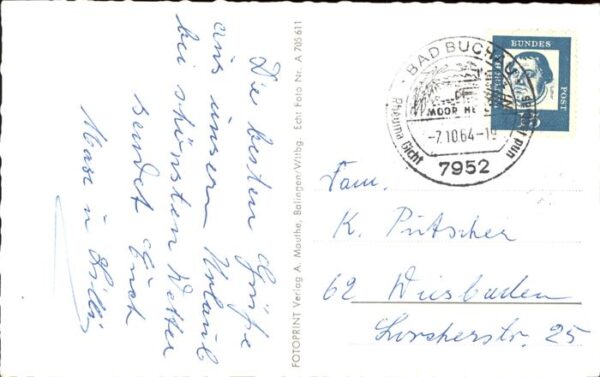 Die besten Grüße
aus unserm Urlaub
bei schönsten Wetter
sendet Euch
Maxe u.
FOTOPRINT Verlag A. Mauthe, Balingen/Wttbg. Echt Foto Nr. A 705 611
BAD BUCHAU
MOOR HE
-7.10.64-19
Rheuma Gicht
und
7952
BUNDES
POST
Fam.
K. Pütscher
62 Wiesbaden
Lorcherstr. 25